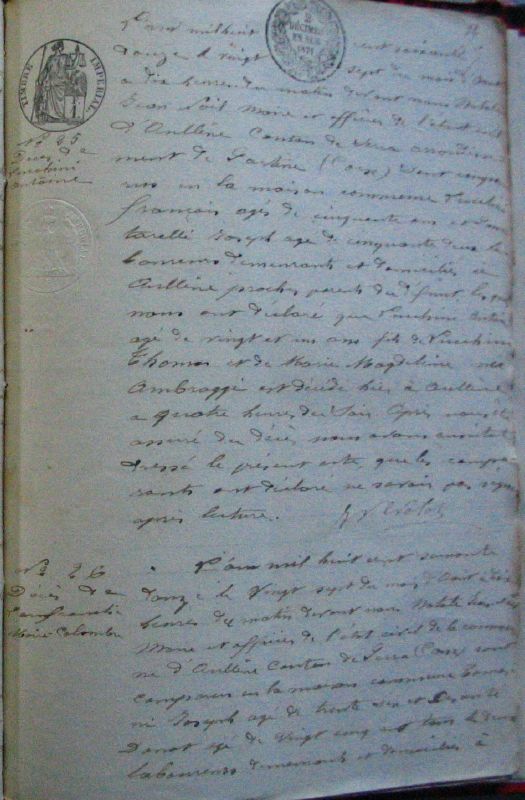 L'an mil huit cent soixante
douze le vingt sept du mois d'Aout
a dix heures du matin devant nous Natale
Jean Noël Maire et officier de l'état civil
d'Aullène Canton de Serra arrondisse-
ment de Sartène (Corse) sont compa-
rus en la maison commune
français agés de cinquante ans et
Joseph agé de cinquante deux la-
boureurs demeurants et domiciliés à
Aullène proches parents du défunt, lesquels
nous ont déclaré que
agé de vingt et un ans fils de
Thomas et de Marie Magdeleine née
Ambroggi est décédé hier à Aullène
a quatre heures du soir Après nous être
assuré du décès nous avons ensuite
dressé le présent acte, que les compa-
rants ont déclaré ne savoir pas signer
après lecture.
TIMBRE IMPERIAL
2 DÉCIMES EN SUS 1871
No 25
Décès de
antoine
No 26
Décès de
Marie Colombe
L'an mil huit cent soixante
douze le vingt sept du mois d'Aout à dix
heures du matin devant nous Natale Jean Noël
Maire et officier de l'état civil de la commu-
ne d'Aullène Canton de Serra (Corse) sont
comparus en la maison commune
Joseph agé de trente six et
agé de vingt cinq ans tous les deux
laboureurs demeurants et domiciliés à